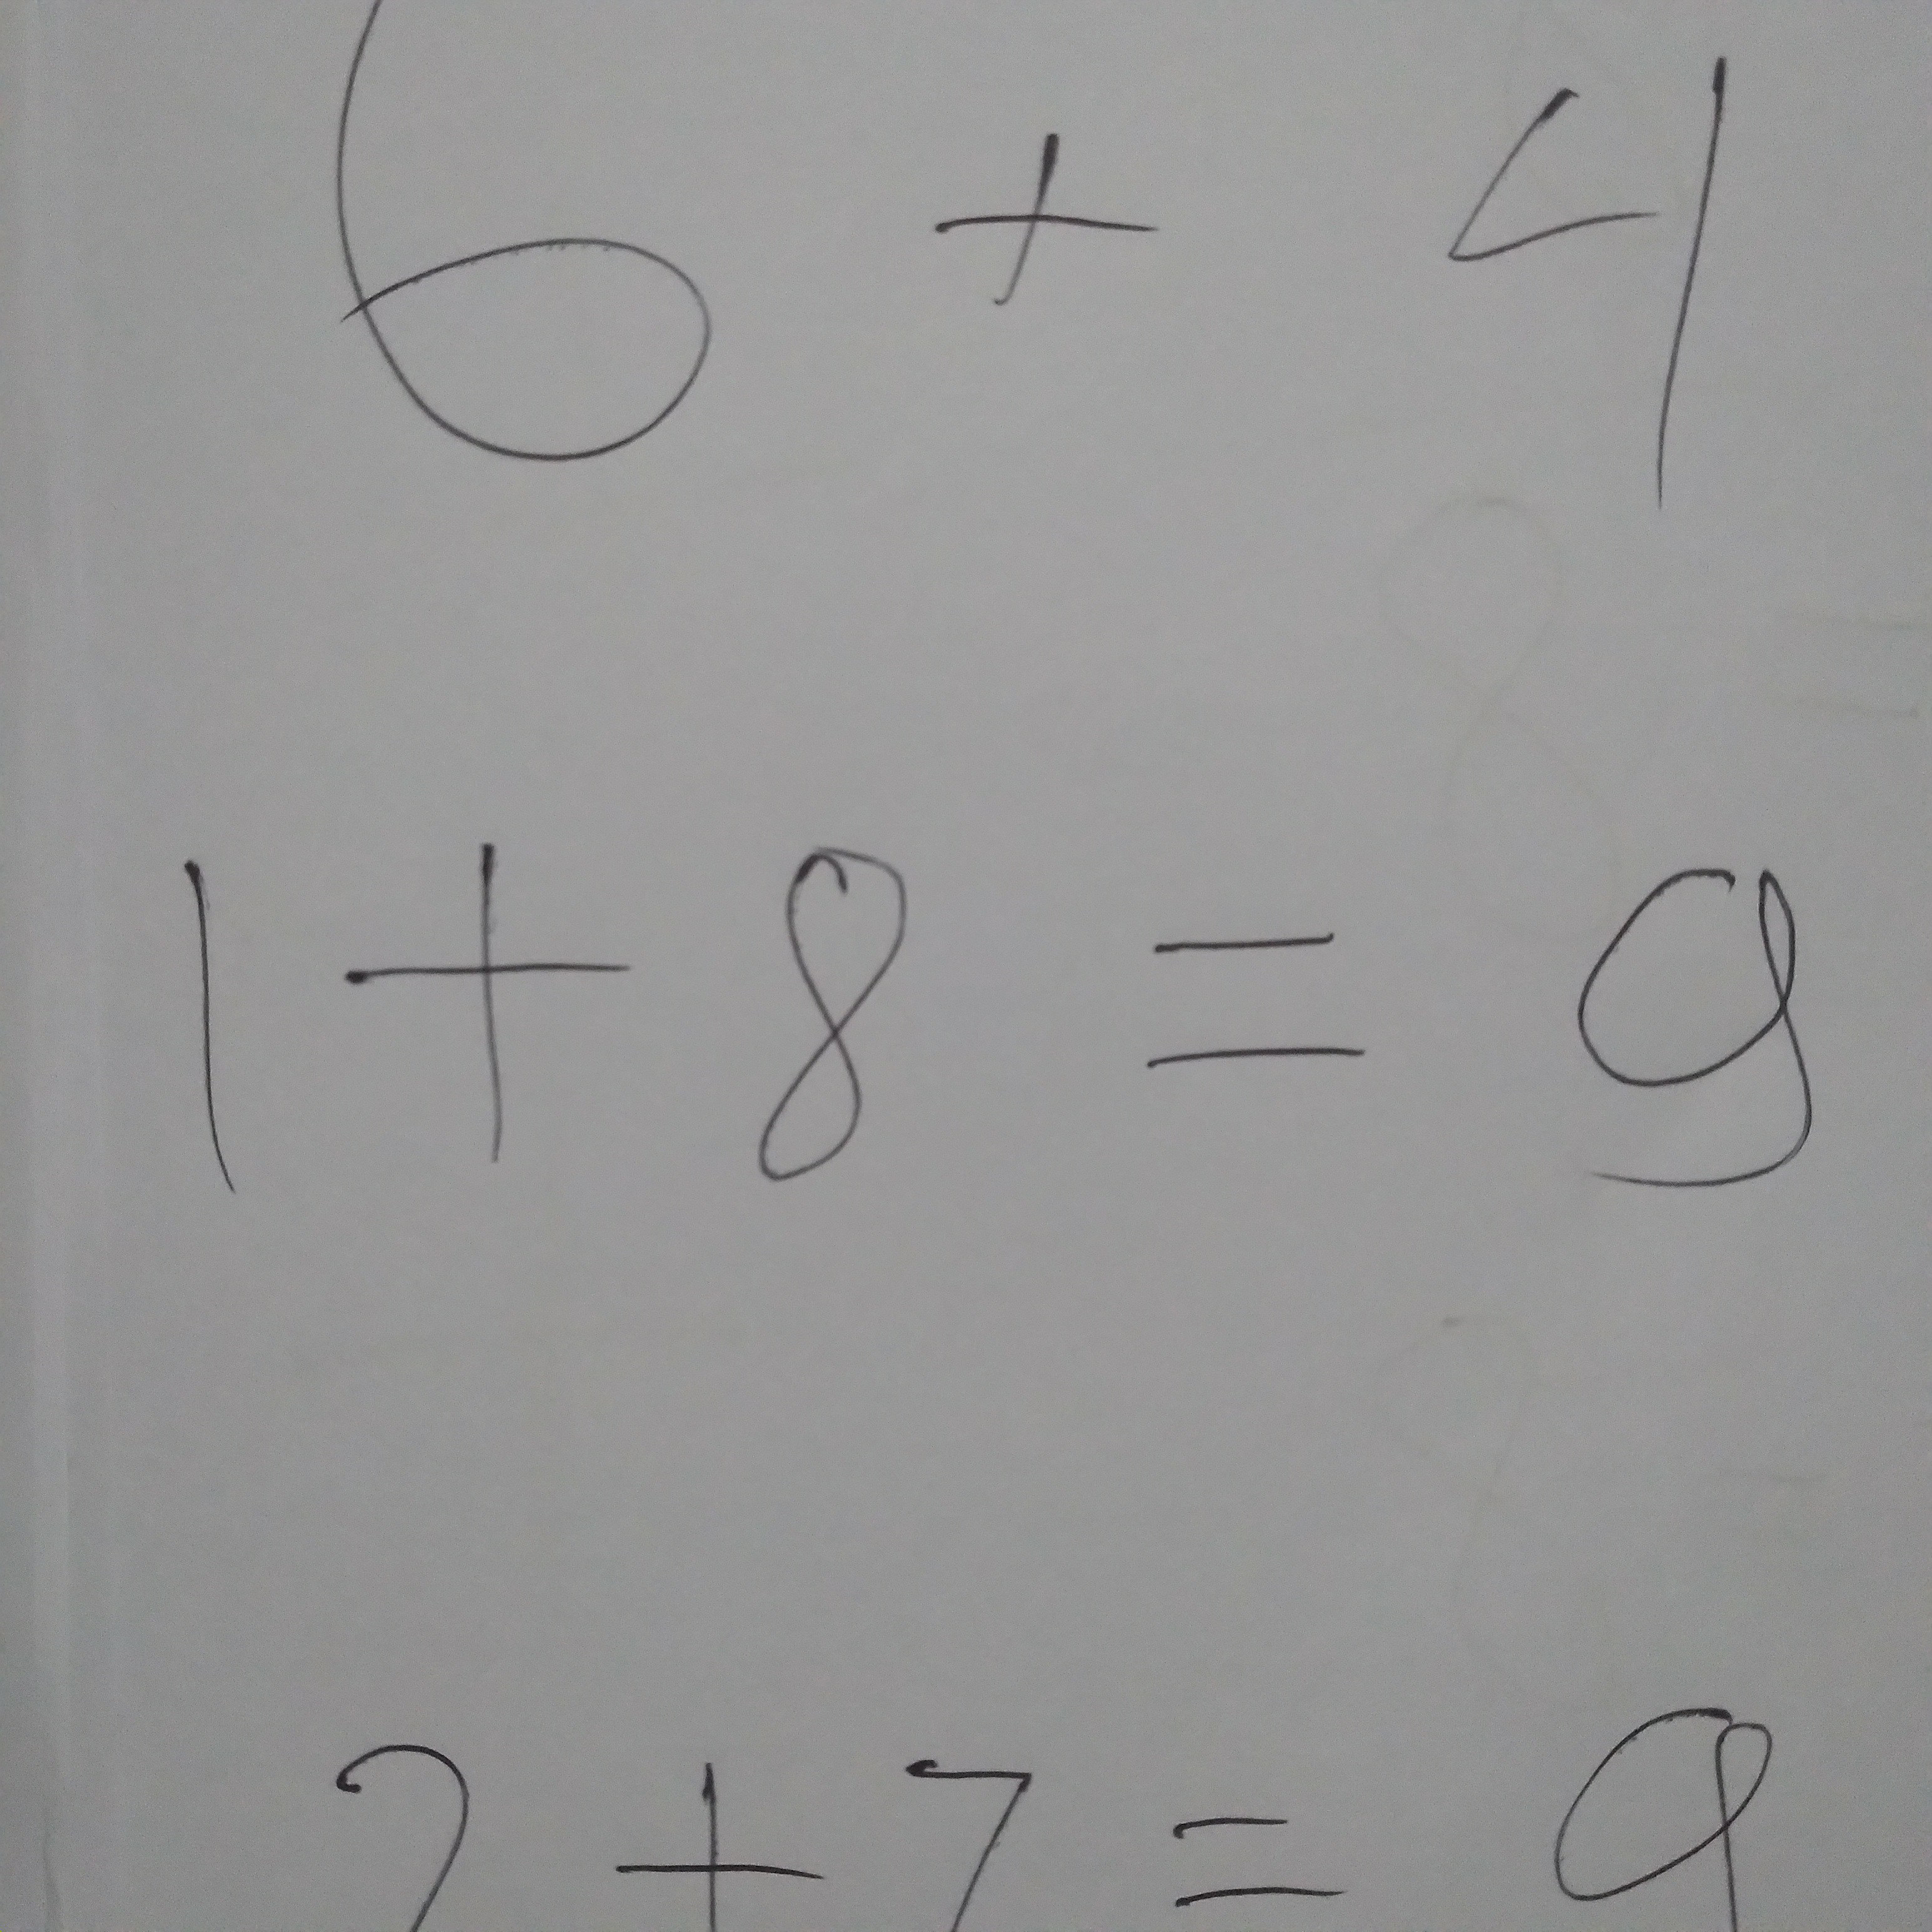 6 + 4
1 + 8 = 9
2 + 7 = 9